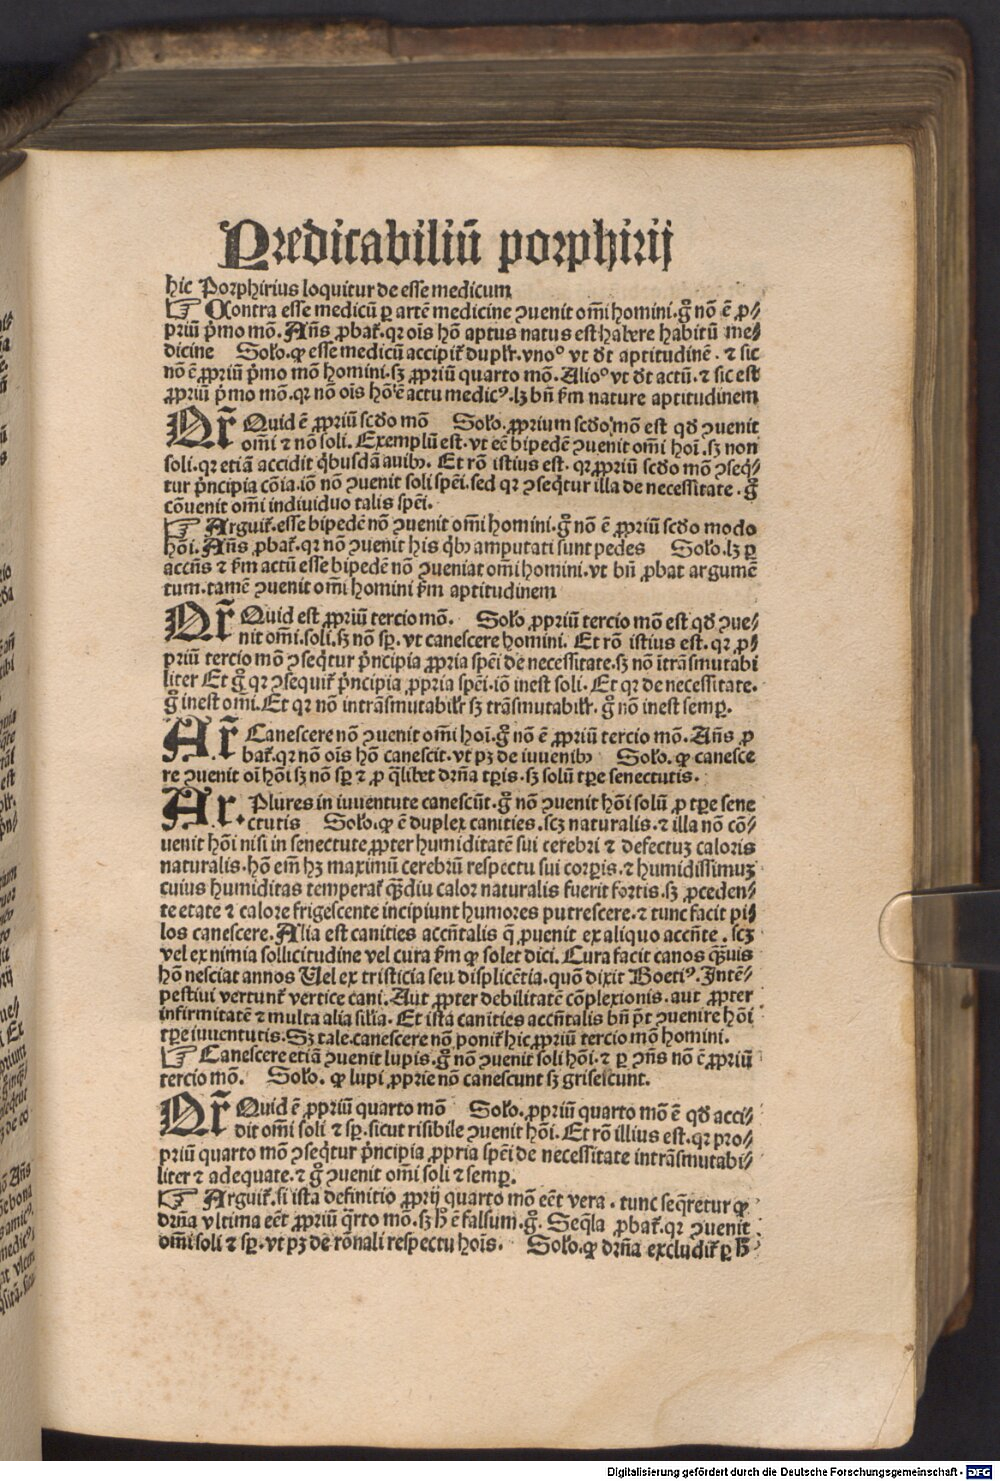 Predicabiliū porphirij
hic Porphirius loquitur de esse medicum
☞ Contra esse medicū ꝑ artē medicine ꝯuenit om̄i homini. gͦ nō ē ꝓ⸗
priū pͥmo mō. Añs ꝓbat̉. qꝛ oīs hō aptus natus est habere habitū me⸗
dicine Solo. ꝙ esse medicū accipit̉ duplr̉. vnoº vt dt̄ aptitudinē. ⁊ sic
nō ē ꝓpriū pͥmo mō homini. sꝫ ꝓpriū quarto mō. Alioº vt dt̄ actū. ⁊ sic est
ꝓpriū pͥmo mō. qꝛ nō oīs hō ē actu medicꝰ. lꝫ bñ ẜm nature aptitudinem
Qr̄ Quid ē ꝓpriū scd̓o mō Solo. ꝓprium scd̓o mō est qd̓ ꝯuenit
om̄i ⁊ nō soli. Exemplū est. vt eē bipedē ꝯuenit om̄i hoī. sꝫ non
soli. qꝛ etiā accidit qͥbusdā auibꝰ. Et rō istius est. qꝛ ꝓpriū scd̓o mō ꝯseq̄⸗
tur pͥncipia cōia. iō nō ꝯuenit soli spēi. sed qꝛ ꝯseq̄tur illa de necessitate. gͦ
cōuenit om̄i indiuiduo talis spēi.
☞ Arguit̉. esse bipedē nō ꝯuenit om̄i homini. gͦ nō ē ꝓpriū scd̓o modo
hōi. Añs ꝓbat̉. qꝛ nō ꝯuenit his qͥbꝰ amputati sunt pedes Solo. lꝫ ꝑ
accñs ⁊ ẜm actū esse bipedē nō ꝯueniat om̄i homini. vt bñ ꝓbat argumē
tum. tamē ꝯuenit om̄i homini ẜm aptitudinem
Qr̄ Quid est ꝓpriū tercio mō. Solo ꝓpriū tercio mō est qd̓ ꝯue⸗
nit om̄i. soli. sꝫ nō sꝑ. vt canescere homini. Et rō istius est. qꝛ ꝓ⸗
priū tercio mō ꝯseq̄tur pͥncipia ꝓpria spēi de necessitate. sꝫ nō itrāsmutabi
liter Et gͦ qꝛ ꝯsequit̉ pͥncipia ꝓpria spēi. iō inest soli. Et qꝛ de necessitate.
gͦ inest om̄i. Et qꝛ nō intrāsmutabilr̉ sꝫ trāsmutabilr̉. gͦ nō inest semꝑ.
Ar̄ Canescere nō ꝯuenit om̄i hoī. gͦ nō ē ꝓpriū tercio mō. Añs ꝓ
bat̉. qꝛ nō oīs hō canescit. vt pꝫ de iuuenibꝰ Solo. ꝙ canesce
re ꝯuenit oī hōi sꝫ nō sꝑ ⁊ ꝓ qͣlibet drña tꝑis. sꝫ solū tꝑe senectutis.
Ar. Plures in iuuentute canescūt. gͦ nō ꝯuenit hōi solū ꝓ tꝑe sene
ctutis Solo. ꝙ ē duplex canities. scꝫ naturalis. ⁊ illa nō cō⸗
uenit hōi nisi in senectute ꝓpter humiditatē sui cerebri ⁊ defectuꝫ caloris
naturalis. hō em̄ hꝫ maximū cerebrū respectu sui corꝑis. ⁊ humidissimuꝫ
cuius humiditas temperat̉ qͣdiu calor naturalis fuerit fortis. sꝫ ꝓceden⸗
te etate ⁊ calore frigescente incipiunt humores putrescere. ⁊ tunc facit pi⸗
los canescere. Alia est canities accñtalis q̄ ꝓuenit ex aliquo accñte. scꝫ
vel ex nimia sollicitudine vel cura ẜm ꝙ solet dici. Cura facit canos qͣuis
hō nesciat annos Uel ex tristicia seu displicētia. quō dixit Boetiꝰ. Intē⸗
pestiui vertunt̉ vertice cani. Aut ꝓpter debilitatē cōplexionis. aut ꝓpter
infirmitatē ⁊ multa alia silia. Et ista canities accñtalis bñ pt̄ ꝯuenire hōi
tꝑe iuuentutis. Sꝫ tale canescere nō ponit̉ hic ꝓpriū tercio mō homini.
☞ Canescere etiā ꝯuenit lupis. gͦ nō ꝯuenit soli hōi. ⁊ ꝑ ꝯñs nō ē ꝓpriū
tercio mō. Solo. ꝙ lupi ꝓprie nō canescunt sꝫ grisescunt.
Qr̄ Quid ē ꝓpriū quarto mō Solo. ꝓpriū quarto mō ē qd̓ acci⸗
dit om̄i soli ⁊ sꝑ. sicut risibile ꝯuenit hōi. Et rō illius est. qꝛ pro⸗
priū quarto mō ꝯseq̄tur pͥncipia ꝓpria spēi de necessitate intrāsmutabi⸗
liter ⁊ adequate. ⁊ gͦ ꝯuenit om̄i soli ⁊ semꝑ.
☞ Arguit̉. si ista definitio ꝓprij quarto mō eēt vera. tunc seq̄retur ꝙ
drñа vltima eēt ꝓpriū qͣrto mō. sꝫ h̄ ē falsum. gͦ. Seq̄la ꝓbat̉. qꝛ ꝯuenit
om̄i soli ⁊ sꝑ. vt pꝫ de rōnali respectu hoīs. Solo. ꝙ drñа excludit̉ ꝑ h̄
Digitalisierung gefördert durch die Deutsche Forschungsgemeinschaft - DFG